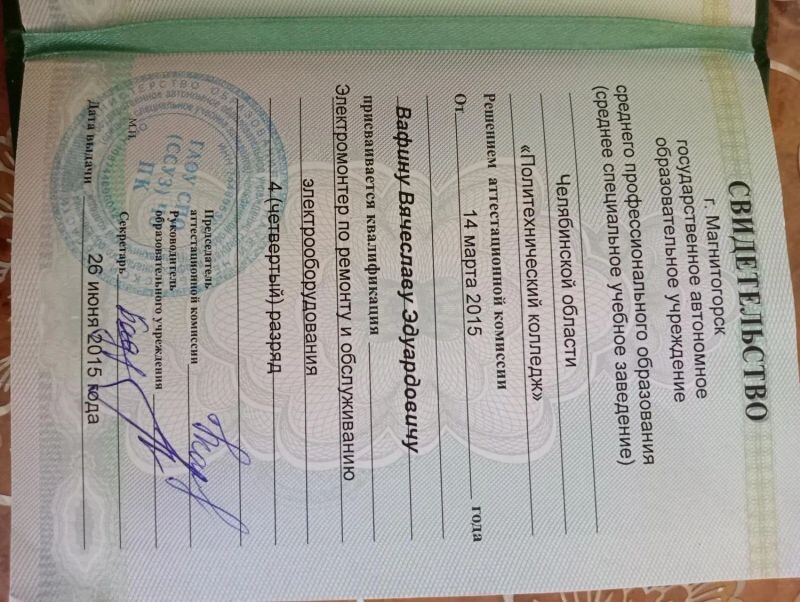 СВИДЕТЕЛЬСТВО
г. Магнитогорск
государственное автономное
образовательное учреждение
среднего профессионального образования
(среднее специальное учебное заведение)
Челябинской области
«Политехнический колледж»
Решением аттестационной комиссии
От 14 марта 2015 года
Вафину Вячеславу Эдуардовичу
присваивается квалификация
Электромонтер по ремонту и обслуживанию
электрооборудования
4 (четвертый) разряд
Председатель
аттестационной комиссии
Руководитель
образовательного учреждения
М.П.
Секретарь
Дата выдачи 26 июня 2015 года
(ССУЗ)
ПК